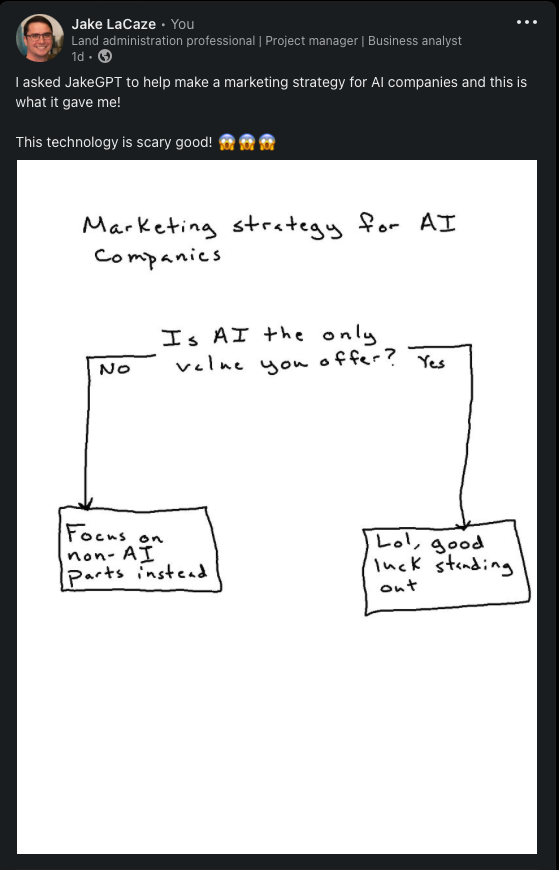 Jake LaCaze • You
Land administration professional | Project manager | Business analyst
1d •
I asked JakeGPT to help make a marketing strategy for AI companies and this is
what it gave me!
This technology is scary good! 😱😱😱
Marketing strategy for AI
Companies
Is AI the only
value you offer?
No
Yes
Focus on
non-AI
parts instead
Lol, good
luck standing
out